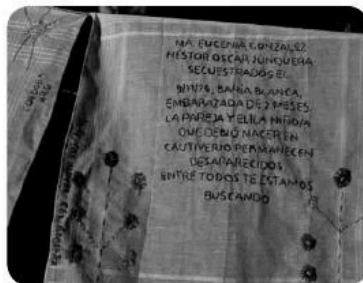 MA. EUGENIA GONZALEZ
NÉSTOR OSCAR JUNQUERA
SECUESTRADOS EL
9/11/76, BAHÍA BLANCA,
EMBARAZADA DE 2 MESES.
LA PAREJA Y EL/LA NIÑO/A
QUE DEBIÓ NACER EN
CAUTIVERIO PERMANECEN
DESAPARECIDOS
ENTRE TODOS TE ESTAMOS
BUSCANDO